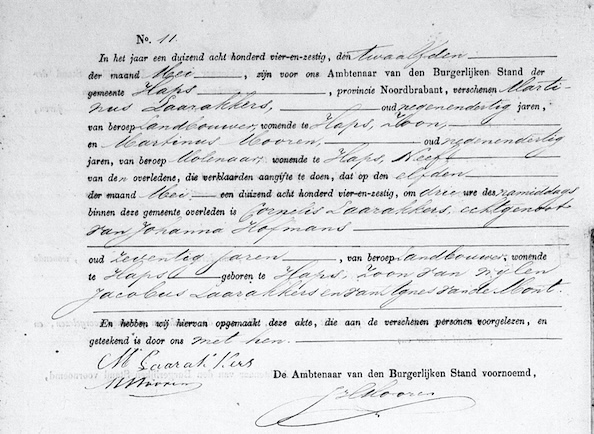 No. 11.
In het jaar een duizend acht honderd vier-en-zestig, den twaalfden
der maand Mei, zijn voor ons Ambtenaar van den Burgerlijken Stand der
gemeente Haps, provincie Noordbrabant, verschenen Marti-
nus Laarakkers, oud negenendertig jaren,
van beroep Landbouwer, wonende te Haps, Zoon,
en Martinus Mooren, oud negenendertig
jaren, van beroep Molenaar, wonende te Haps, Neef
van den overledene, die verklaarden aangifte te doen, dat op den elfden
der maand Mei een duizend acht honderd vier-en-zestig, om drie ure des namiddags
binnen deze gemeente overleden is Cornelis Laarakkers, echtgenoot
van Johanna Hofmans
oud zeventig jaren, van beroep Landbouwer, wonende
te Haps geboren te Haps, Zoon van wijlen
Jacobus Laarakkers en van Agnes van de Mont.
En hebben wij hiervan opgemaakt deze akte, die aan de verschenen personen voorgelezen, en
geteekend is door ons met hen.
M Laarakkers
M Mooren
De Ambtenaar van den Burgerlijken Stand voornoemd,
Mooren